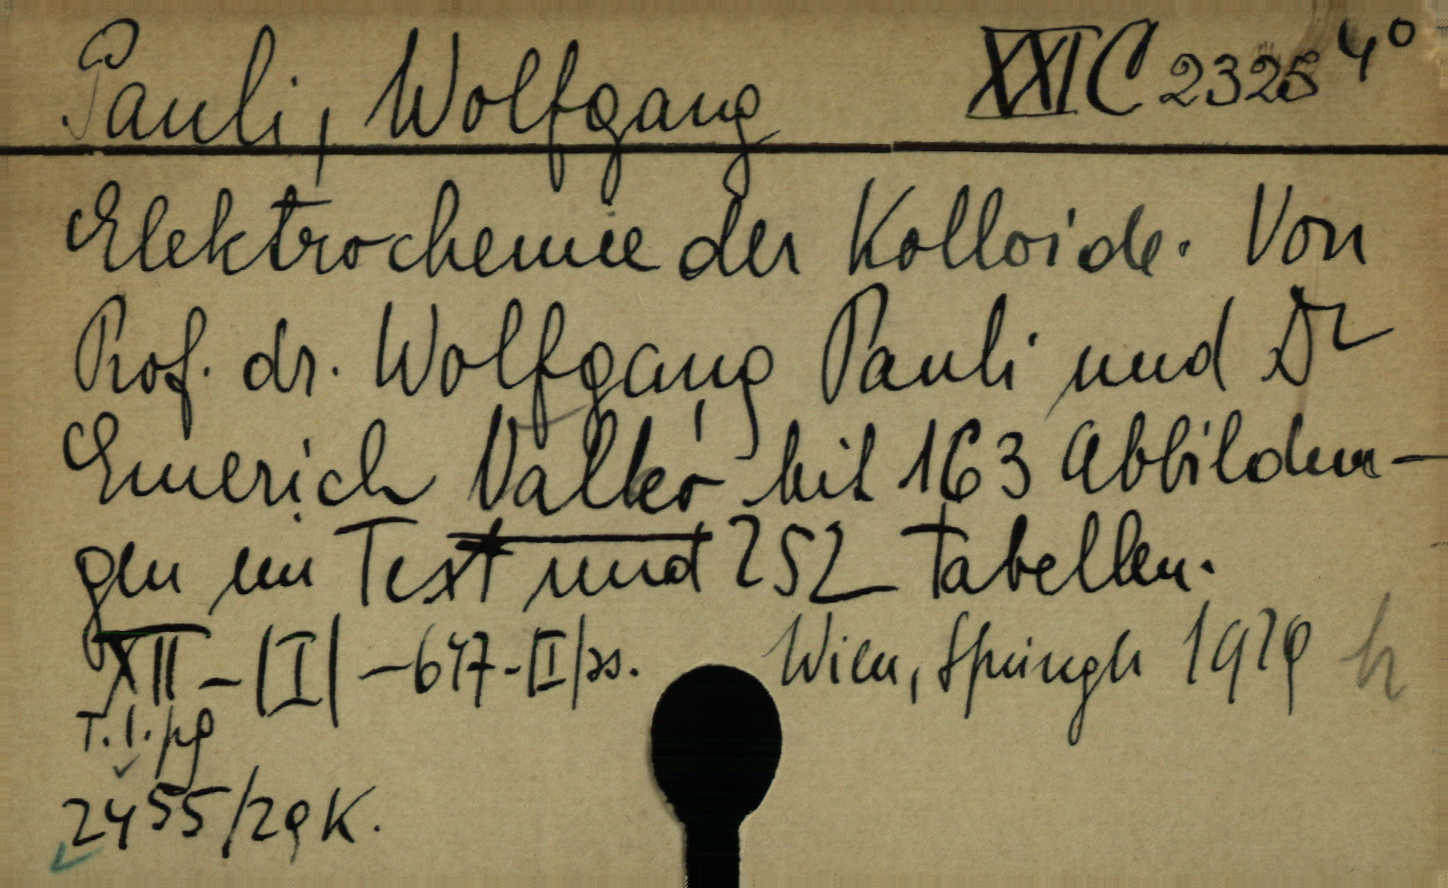 Pauli, Wolfgang XXI C 2325 4°
Elektrochemie der Kolloide. Von
Prof. dr. Wolfgang Pauli und Dr
Emerich Valkó Mit 163 Abbildun-
gen im Text und 252 Tabellen.
XII-[I]-647-[I] ss. Wien, Springer 1929 h
T. I. pg
2455/29 K.